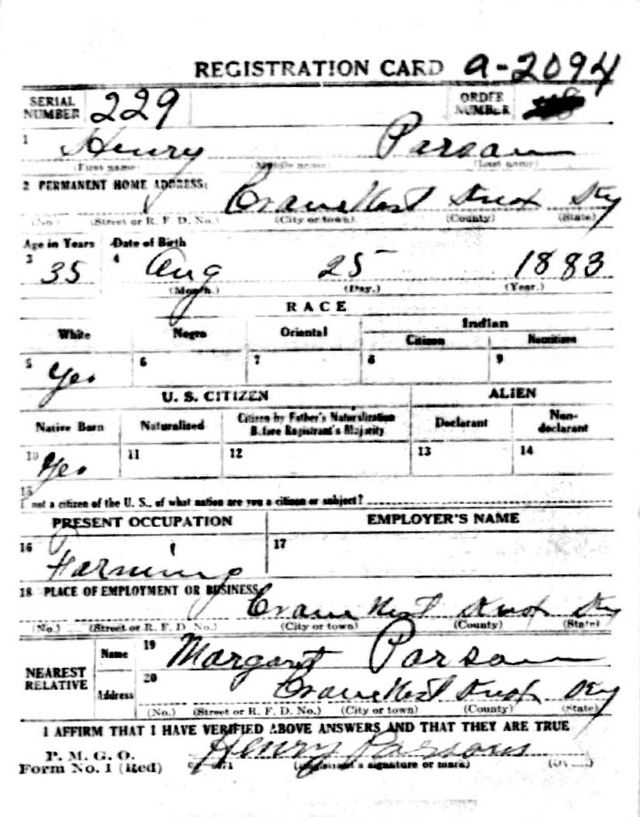 REGISTRATION CARD a-2094
SERIAL NUMBER 229 ORDER NUMBER
1 Henry Parson
(First name) (Middle name) (Last name)
2 PERMANENT HOME ADDRESS:
Crane Nest Knox Ky
(No.) (Street or R. F. D. No.) (City or town) (County) (State)
Age in Years Date of Birth
3 35 4 Aug 25 1883
(Month.) (Day.) (Year.)
RACE
White Negro Oriental Indian
Citizen Noncitizen
5 Yes 6 7 8 9
U. S. CITIZEN ALIEN
Native Born Naturalized Citizen by Father's Naturalization Before Registrant's Majority Declarant Non-declarant
10 Yes 11 12 13 14
15
not a citizen of the U. S., of what nation are you a citizen or subject?
PRESENT OCCUPATION EMPLOYER'S NAME
16 Farming 17
18 PLACE OF EMPLOYMENT OR BUSINESS
Crane Nest Knox Ky
(No.) (Street or R. F. D. No.) (City or town) (County) (State)
NEAREST RELATIVE
Name 19 Margaret Parson
Address 20 Crane Nest Knox Ky
(No.) (Street or R. F. D. No.) (City or town) (County) (State)
I AFFIRM THAT I HAVE VERIFIED ABOVE ANSWERS AND THAT THEY ARE TRUE
P. M. G. O.
Form No. 1 (Red) Henry Parsons
(Registrant's signature or mark)